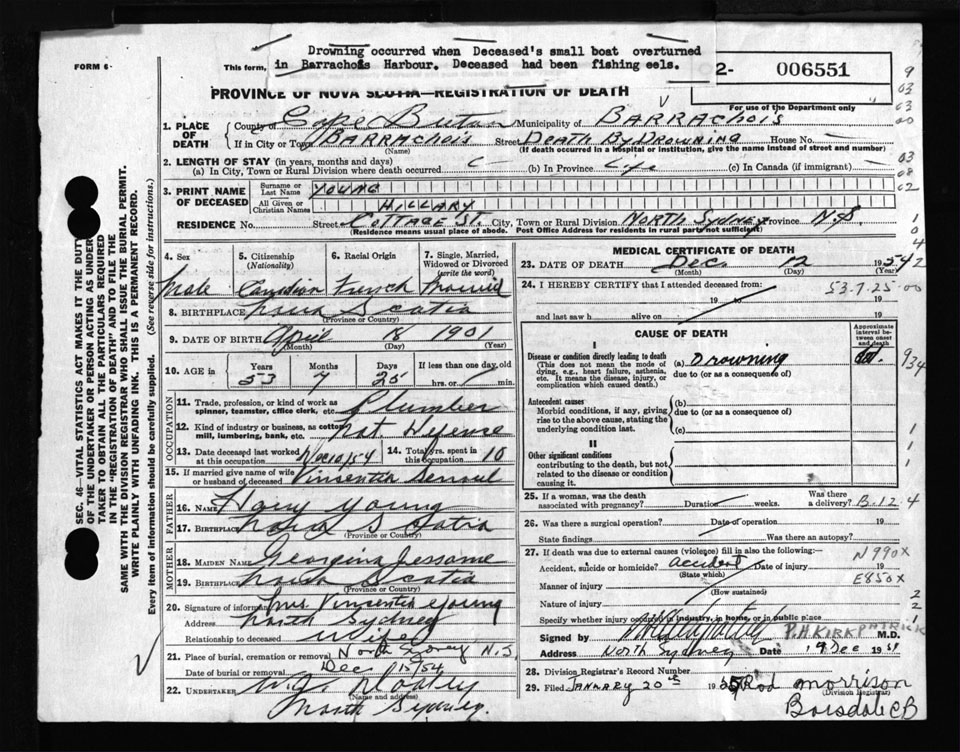 Drowning occurred when Deceased's small boat overturned
in Barrachois Harbour. Deceased had been fishing eels.
FORM 6
This form,
2- 006551
PROVINCE OF NOVA SCOTIA—REGISTRATION OF DEATH
For use of the Department only
1. PLACE OF DEATH
County of Cape Breton Municipality of BARRACHOIS
If in City or Town BARRACHOIS Street DEATH BY DROWNING House No.
(Name) (If death occurred in a hospital or institution, give the name instead of street and number)
2. LENGTH OF STAY (in years, months and days)
(a) In City, Town or Rural Division where death occurred (b) In Province Life (c) In Canada (if immigrant)
3. PRINT NAME OF DECEASED
Surname or Last Name YOUNG
All Given or Christian Names HILLARY
RESIDENCE No. Street COTTAGE ST. City, Town or Rural Division NORTH SYDNEY Province N.S.
(Residence means usual place of abode. Post Office Address for residents in rural parts not sufficient)
4. Sex
Male
5. Citizenship
(Nationality)
Canadian
6. Racial Origin
French
7. Single, Married, Widowed or Divorced
(write the word)
Married
8. BIRTHPLACE Nova Scotia
(Province or Country)
9. DATE OF BIRTH April 18 1901
(Month) (Day) (Year)
10. AGE in
Years Months Days If less than one day, old
53 7 25 hrs. or min.
OCCUPATION
11. Trade, profession, or kind of work as spinner, teamster, office clerk, etc. Plumber
12. Kind of industry or business, as cotton mill, lumbering, bank, etc. Nat. Defense
13. Date deceased last worked at this occupation Dec 10/54
14. Total yrs. spent in this occupation 10
15. If married give name of wife or husband of deceased Vinsentia
FATHER
16. Name Young
17. Birthplace Nova Scotia
(Province or Country)
MOTHER
18. MAIDEN NAME Georgina Jessome
19. BIRTHPLACE Nova Scotia
(Province or Country)
20. Signature of informant Mrs Vinsentia Young
Address North Sydney
Relationship to deceased Wife
21. Place of burial, cremation or removal North Sydney N.S.
Date of burial or removal Dec 15/54
22. UNDERTAKER
(Name and address)
North Sydney.
MEDICAL CERTIFICATE OF DEATH
23. DATE OF DEATH Dec. 12 1954
(Month) (Day) (Year)
24. I HEREBY CERTIFY that I attended deceased from:
53.7.25
19 to 19
and last saw h alive on 19
CAUSE OF DEATH
Approximate interval between onset and death
I
Disease or condition directly leading to death
(This does not mean the mode of dying, e.g., heart failure, asthenia, etc. It means the disease, injury, or complication which caused death.)
(a) Drowning
due to (or as a consequence of)
934
Antecedent causes
Morbid conditions, if any, giving rise to the above cause, stating the underlying condition last.
(b)
due to (or as a consequence of)
(c)
II
Other significant conditions
contributing to the death, but not related to the disease or condition causing it.
25. If a woman, was the death associated with pregnancy? Duration weeks. Was there a delivery? B.12 4
26. Was there a surgical operation? Date of operation 19
State findings Was there an autopsy?
27. If death was due to external causes (violence) fill in also the following:— N990X
Accident, suicide or homicide? accident Date of injury 19
(State which)
E850X
Manner of injury
(How sustained)
Nature of injury
Specify whether injury occurred in industry, in home, or in public place
Signed by P.H KIRKPATRICK M.D.
Address North Sydney Date 19 Dec 19
28. Division Registrar's Record Number
29. Filed JANUARY 20th 1955 Rod Morrison
(Division Registrar)
Boisdale CB
SEC. 46—VITAL STATISTICS ACT MAKES IT THE DUTY
OF THE UNDERTAKER OR PERSON ACTING AS UNDER-
TAKER TO OBTAIN ALL THE PARTICULARS REQUIRED
IN THE "REGISTRATION OF DEATH" AND TO FILE THE
SAME WITH THE DIVISION REGISTRAR WHO SHALL ISSUE THE BURIAL PERMIT.
WRITE PLAINLY WITH UNFADING INK. THIS IS A PERMANENT RECORD.
Every item of information should be carefully supplied. (See reverse side for instructions.)